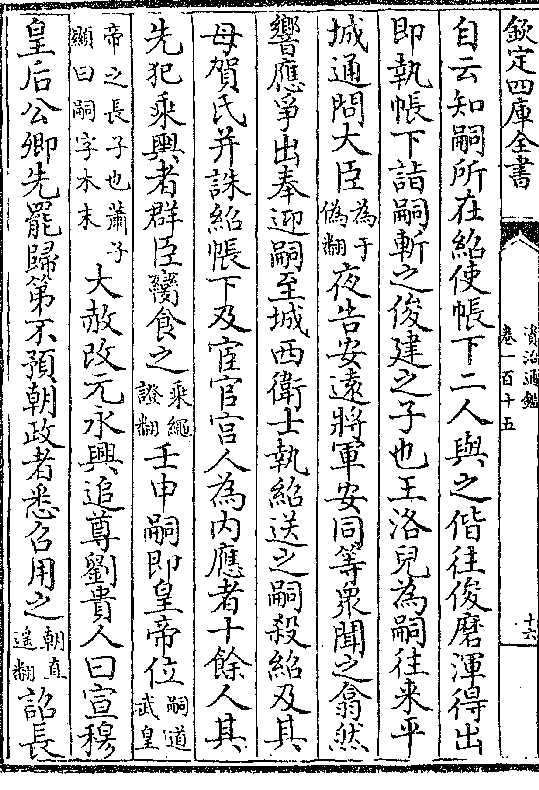 欽定四庫全書
資治通鑑
卷一百十五
十六
自云知嗣所在紹使帳下二人與之偕往俊磨渾得出
即執帳下詣嗣斬之俊建之子也王洛兒為嗣往来平
城通問大臣為于偽翻夜告安遠將軍安同等衆聞之翕然
響應爭出奉迎嗣至城西衛士執紹送之嗣殺紹及其
母賀氏并誅紹帳下及宦官宫人為内應者十餘人其
先犯乗輿者群臣臠食之乗繩證翻壬申嗣即皇帝位嗣道武皇
帝之長子也蕭子顯曰嗣字木末大赦改元永興追尊劉貴人曰宣穆
皇后公卿先罷歸第不預朝政者悉召用之朝直遥翻詔長